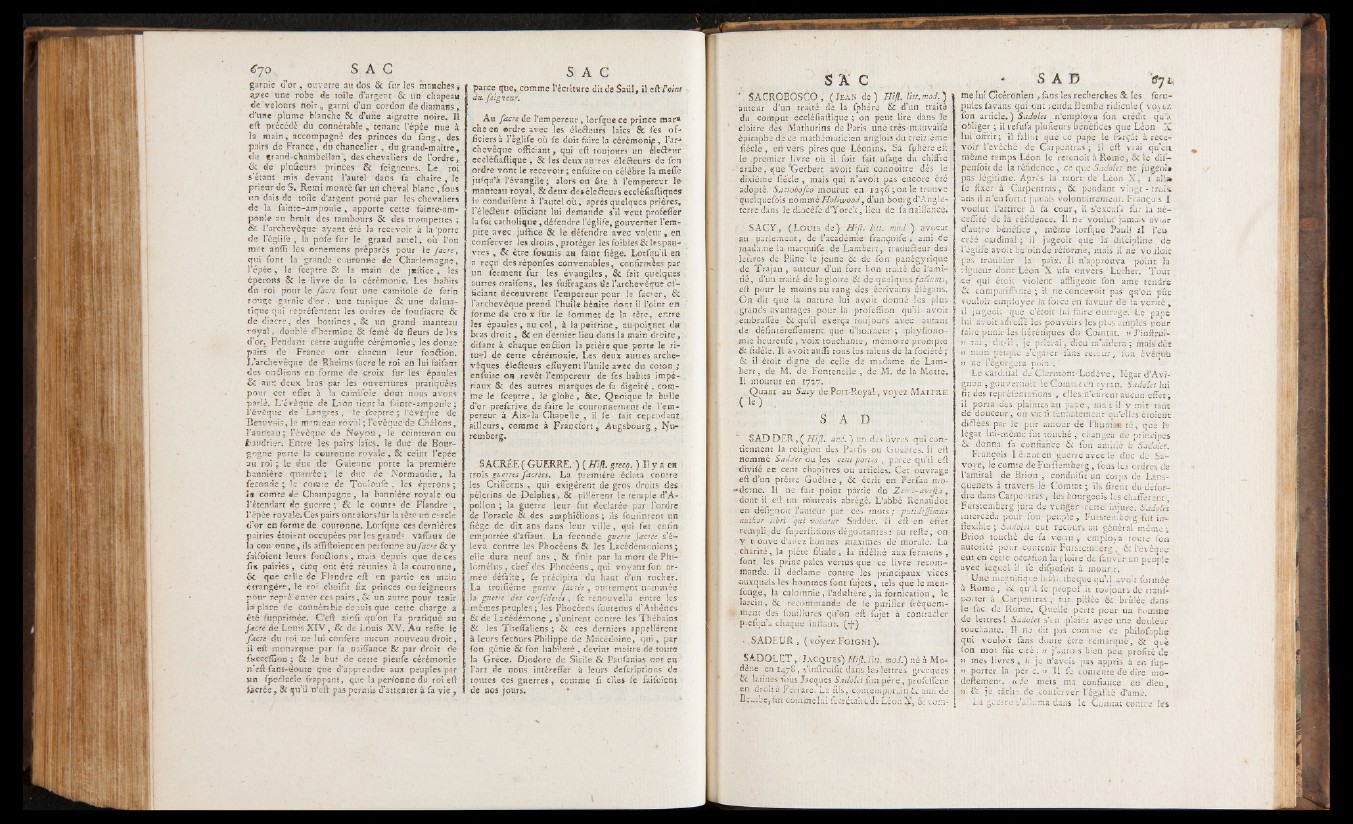 670 S A C
garnie d'or, ouverte au dos & sur les manches ;
avec une robe de toile d'argent & un chapeau
de velours noir, garni d'un cordon de diamans,
d'une plume blanche & d'une aigrette noire. Il
est précédé du connétable, tenant l'épée nue à
la main, accompagné des princes du sang, des
pairs de France, du chancelier, du grand-maître,
du grand-chambellan, des chevaliers de l'ordre,
& de plusieurs princes & seigneurs. Le roi
s'étant mis devant l'autel dans sa chaire, le
prieur de S. Remi monté sur un cheval blanc, sous
un dais de toile d'argent porté par les chevaliers
de la sainte-ampoule, apporte cette sainte-am-
poule au bruit des tambours & des trompettes ;
& l'archevêque ayant été la recevoir à la porte
de l'église, la pose sur le grand autel, où l'on
met aussi les ornemens préparés pour le sacre,
qui sont la grande couronne de Charlemagne,
l'épée, le sceptre & la main de justice, les
éperons & le livre de la cérémonie. Les habits
du roi pour le sacre sont une camisole de satin
rouge garnie d'or, une tunique & une dalma-
tique qui représentent les ordres de soudiacre &
de diacre, des bottines, & un grand manteau
royal, doublé d'hermine & semé de fleurs de lys
d'or. Pendant cette auguste cérémonie, les douze
pairs de France ont chacun leur fonction.
L'archevêque de Rheims sacre le roi en lui faisant
des onctions en forme de croix sur les épaules
& aux deux bras par les ouvertures pratiquées
pour cet effet à la camisole dont nous avons
parlé. L'évêque de Laon tient la sainte-ampoule ;
l'évêque de Langres, le sceptre ; l'évêque de
Beauvais, le manteau royal ; l'évêque de Châlons,
l'anneau ; l'évêque de Noyon, le ceinturon ou
baudrier. Entre les pairs laïcs, le duc de Bour-
gogne porte la couronne royale, & ceint l'épée
au roi ; le duc de Guienne porte la première
bannière quarrée ; le duc de Normandie, la
seconde ; le comte de Toulouse, les éperons ;
le comte de Champagne, la bannière royale ou
l'étendart de guerre ; & le comte de Flandre,
l'épée royale. Ces pairs ont alors sur la tête un cercle
d'or en forme de couronne. Lorsque ces dernières
pairies étoient occupées par les grands vassaux de
la couronne, ils assistoient en personne au sacre & y
faisoient leurs fonctions, mais depuis que de ces
six pairies, cinq ont été réunies à la couronne,
& que celle de Flandre est en partie en main
étrangère, le roi choisit six princes ou seigneurs
pour représenter ces pairs, & un autre pour tenir
la place de connétable depuis que cette charge a
été supprimée. C'est ainsi qu'on l'a pratiqué au
sacre de Louis XIV, & de Louis XV. Au reste le
sacre du roi ne lui confère aucun nouveau droit,
il est monarque par sa naissance & par droit de
succession ; & le but de cette pieuse cérémonie
n'est sans-doute que d'apprendre aux peuples par
un spectacle frappant, que la personne du roi est
sacrée, & qu'il n'est pas permis d'attenter à sa vie,
S A C
parce que, comme l'écriture dit de Saül, il est l'oint
du seigneur.
Au sacre de l'empereur, lorsque ce prince mar-
che en ordre avec les électeurs laïcs & ses of-
ficiers à l'église où se doit faire la cérémonie, l'ar-
chevêque officiant, qui est toujours un électeur
ecclésiastique, & les deux autres électeurs de son
ordre vont le recevoir ; ensuite on célèbre la messe
jusqu'à l'évangile ; alors on ôte à l'empereur le
manteau royal, & deux des électeurs ecclésiastiques
le conduisent à l'autel où, après quelques prières,
l'électeur officiant lui demande s'il veut professer
la foi catholique, défendre l'église, gouverner l'em-
pire avec justice & le défendre avec valeur, en
conserver les droits, protéger les foibles & les pau-
vres, & être soumis au saint siège. Lorsqu'il en
a reçu des réponses convenables, confirmées par
un serment sur les évangiles, & fait quelques
autres oraisons, les suffragans de l'archevêque of-
ficiant découvrent l'empereur pour le sacrer, &
l'archevêque prend l'huile bénite dont il l'oint en
forme de croix sur le sommet de la tête, entre
les épaules, au col, à la poitrine, au poignet du
bras droit, & en dernier lieu dans la main droite,
disant à chaque onction la prière que porte le ri-
tuel de cette cérémonie. Les deux autres arche-
vêques électeurs essuyent l'huile avec du coton ;
ensuite on revêt l'empereur de ses habits impé-
riaux & des autres marques de sa dignité, com-
me le sceptre, le globe, &c. Quoique la bulle
d'or prescrive de faire le couronnement de l'em-
pereur à Aix-la-Chapelle, il se fait cependant
ailleurs, comme à Francfort, Augsbourg, Nu-
remberg.
SACRÉE ( GUERRE. ) ( Hist. grecq. ) Il y a eu
trois guerres sacrées. La première éclata contre
les Crisséens, qui exigèrent de gros droits des
pélerins de Delphes, & pillèrent le temple d'A-
pollon ; la guerre leur fut déclarée par l'ordre
de l'oracle & des amphictions ; ils soutinrent un
siège de dix ans dans leur ville, qui fut enfin
emportée d'assaut. La seconde guerre sacrée s'é-
leva contre les Phocéens & les Lacédémoniens ;
elle dura neuf ans, & finit par la mort de Phi-
lomélus, chef des Phocéens, qui voyant son ar-
mée défaite, se précipita du haut d'un rocher.
La troisième guerre sacrée, autrement nommée
la guerre des confédérés, se renouvella entre les
mêmes peuples ; les Phocéens soutenus d'Athènes
& de Lacédémone, s'unirent contre les Thébains
& les Thessaliens ; & ces derniers appellèrent
à leurs secours Philippe de Macédoine, qui, par
son génie & son habileté, devint maître de toute
la Grèce. Diodore de Sicile & Pausanias ont eu
l'art de nous intéresser à leurs descriptions de
toutes ces guerres, comme si elles se faisoient
de nos jours.
S A C
SACROBOSCO, ( JEAN de ) Hist. litt. mod. )
auteur d'un traité de la sphère & d'un traité
du comput ecclésiastique ; on peut lire dans le
cloître des Mathurins de Paris une très-mauvaise
épitaphe de ce mathématicien anglois du treizième
siècle, en vers pires que Léonins. Sa sphère est
le premier livre où il soit fait usage du chiffre
arabe, que Gerbert avoit fait connoître dès le
dixième siècle, mais qui n'avoit pas encore été
adopté. Sacrobosco mourut en 1256 ; on le trouve
quelquefois nommé Holiwood, d'un bourg d'Angle-
terre dans le diocèse d'Yorck, lieu de sa naissance.
SACY, ( LOUIS de) Hist. litt. mod ) avocat
au parlement, de l'académie françoise, ami de
madame la marquise de Lambert, traducteur des
lettres de Pline le jeune & de son panégyrique
de Trajan, auteur d'un fort bon traité de l'ami-
tié, d'un traité de la gloire & de quelques factums,
est pour le moins au rang des écrivains élégans.
On dit que la nature lui avoit donné les plus
grands avantages pour la profession qu'il avoit
embrassée & qu'il exerça toujours avec autant
de désintéressement que d'honneur ; physiono-
mie heureuse, voix touchante, mémoire prompte
& fidèle. Il avoit aussi tous les talens de la société ;
& il étoit digne de celle de madame de Lam-
bert, de M. de Fontenelle, de M. de la Motte.
Il mourut en 1727.
Quant au Sacy de Port-Royal, voyez MAITRE
( le )
S A D
SADDER, ( Hist. anc. ) un des livres qui con-
tiennent la religion des Parsis ou Guèbres. Il est
nommé Sadder ou les cent portes, parce qu'il est
divisé en cent chapitres ou articles. Cet ouvrage
est d'un prêtre Guèbre, & écrit en Persan mo-
derne. Il ne fait point partie du Zend-avesta,
dont il est un mauvais abrégé. L'abbé Renaudot
en désignoit l'auteur par ces mots ; putidissimus
author libri qui vocatur Sadder. Il est en effet
rempli de superstitions dégoûtantes : au reste, on
y trouve d'assez bonnes maximes de morale. La
charité, la piété filiale, la fidélité aux sermens,
sont les principales vertus que ce livre recom-
mande. Il déclame contre les principaux vices
auxquels les hommes sont sujets, tels que le men-
songe, la calomnie, l'adultère, la fornication, le
larcin, & recommande de se purifier fréquem-
ment des souillures qu'on est sujet à contracter
presqu'à chaque instant. (+)
SADEUR, ( voyez FOIGNI ).
SADOLET, JACQUES) Hist. litt. mod.) né à Mo-
dène en 1478, s'instruisit dans les lettres grecques
& latines sous Jacques Sadolet son père, professeur
en droit à Ferrare. Le fils, contemporain & ami de
Bembe, fut comme lui secrétaire de Léon X, & com-
S A D 671
me lui Cicéronien, sans les recherches & les scru-
pules savans qui ont rendu Bembe ridicule ( voyez
son article, ) Sadolet n'employa son crédit qu'à
obliger ; il refusa plusieurs bénéfices que Léon X
lui offrit ; il fallut que ce pape le forçât à rece-
voir l'évêché de Carpentras ; il est vrai qu'en
même temps Léon le retenoit à Rome, & le dis-
pensoit de la résidence, ce que Sadolet ne jugeoit
pas légitime. Après la mort de Léon X, il alla
se fixer à Carpentras, & pendant vingt-trois
ans il n'en sortit jamais volontairement. François I
voulut l'attirer à sa cour, il s'excusa sur la né-
cessité de la résidence. Il ne voulut jamais avoir
d'autre bénéfice, même lorsque Paul III l'eut
créé cardinal ; il jugeoit que la discipline de
l'église avoit besoin de réforme, mais il ne vouloit
pas troubler la paix. Il n'approuva point la
rigueur dont Léon X usa envers Luther. Tout
ce qui étoit violent affligeoit son ame tendre
& compatissante ; il ne concevoit pas qu'on pût
vouloir employer la force en faveur de la vérité,
il jugeoit que c'étoit lui faire outrage. Le pape
lui avoit adressé les pouvoirs les plus amples pour
faire punir les hérétiques du Comtat. » J'instrui-
» rai, dit-il, je prierai, dieu m'aidera ; mais dût
» mon peuple s'égarer sans retour, son évêque
» ne l'égorgera point.
Le cardinal de Clermont-Lodève, légat d'Avi-
gnon, gouvernoit le Comtat en tyran. Sadolet lui
fit des représentations, elles n'eurent aucun effet ;
il porta des plaintes au pape, mais il y mit tant
de douceur, on vit si sensiblement qu'elles étoient
dictées par le pur amour de l'humanité, que le
légat lui-même fut touché, changea de principes
& donna sa confiance & son amitié à Sadolet.
François I étant en guerre avec le duc de Sa-
voye, le comte de Furstemberg, sous les ordres de
l'amiral de Brion, conduisit un corps de Lans-
quenets à travers le Comtat ; ils firent du désor-
dre dans Carpentras, les bourgeois les chassèrent,
Furstemberg jura de venger cette injure. Sadolet
intercéda pour son peuple, Furstemberg fut in-
flexible ; Sadolet eut recours au général même ;
Brion touché de sa vertu, employa toute son
autorité pour contenir Furstemberg, & l'évêque
eut en cette occasion la gloire de sauver un peuple
avec lequel il se disposoit à mourir.
Une magnifique bibliothèque qu'il avoit formée
à Rome, & qu'il se proposoit toujours de trans-
porter à Carpentras ; fut pillée & brûlée dans
le sac de Rome. Quelle perte pour un homme
de lettres ! Sadolet s'en plaint avec une douleur
touchante. Il ne dit pas comme ce philosophe
qui vouloit sans doute être remarqué, & que
son mot fût cité : » j'aurois bien peu profité de
» mes livres, si je n'avois pas appris à en sup-
» porter la perte. » Il se contente de dire mo-
destement. « Je mets ma confiance en dieu,
» & je tâche de conserver l'égalité d'ame.
La guerre s'alluma dans le Comtat contre les